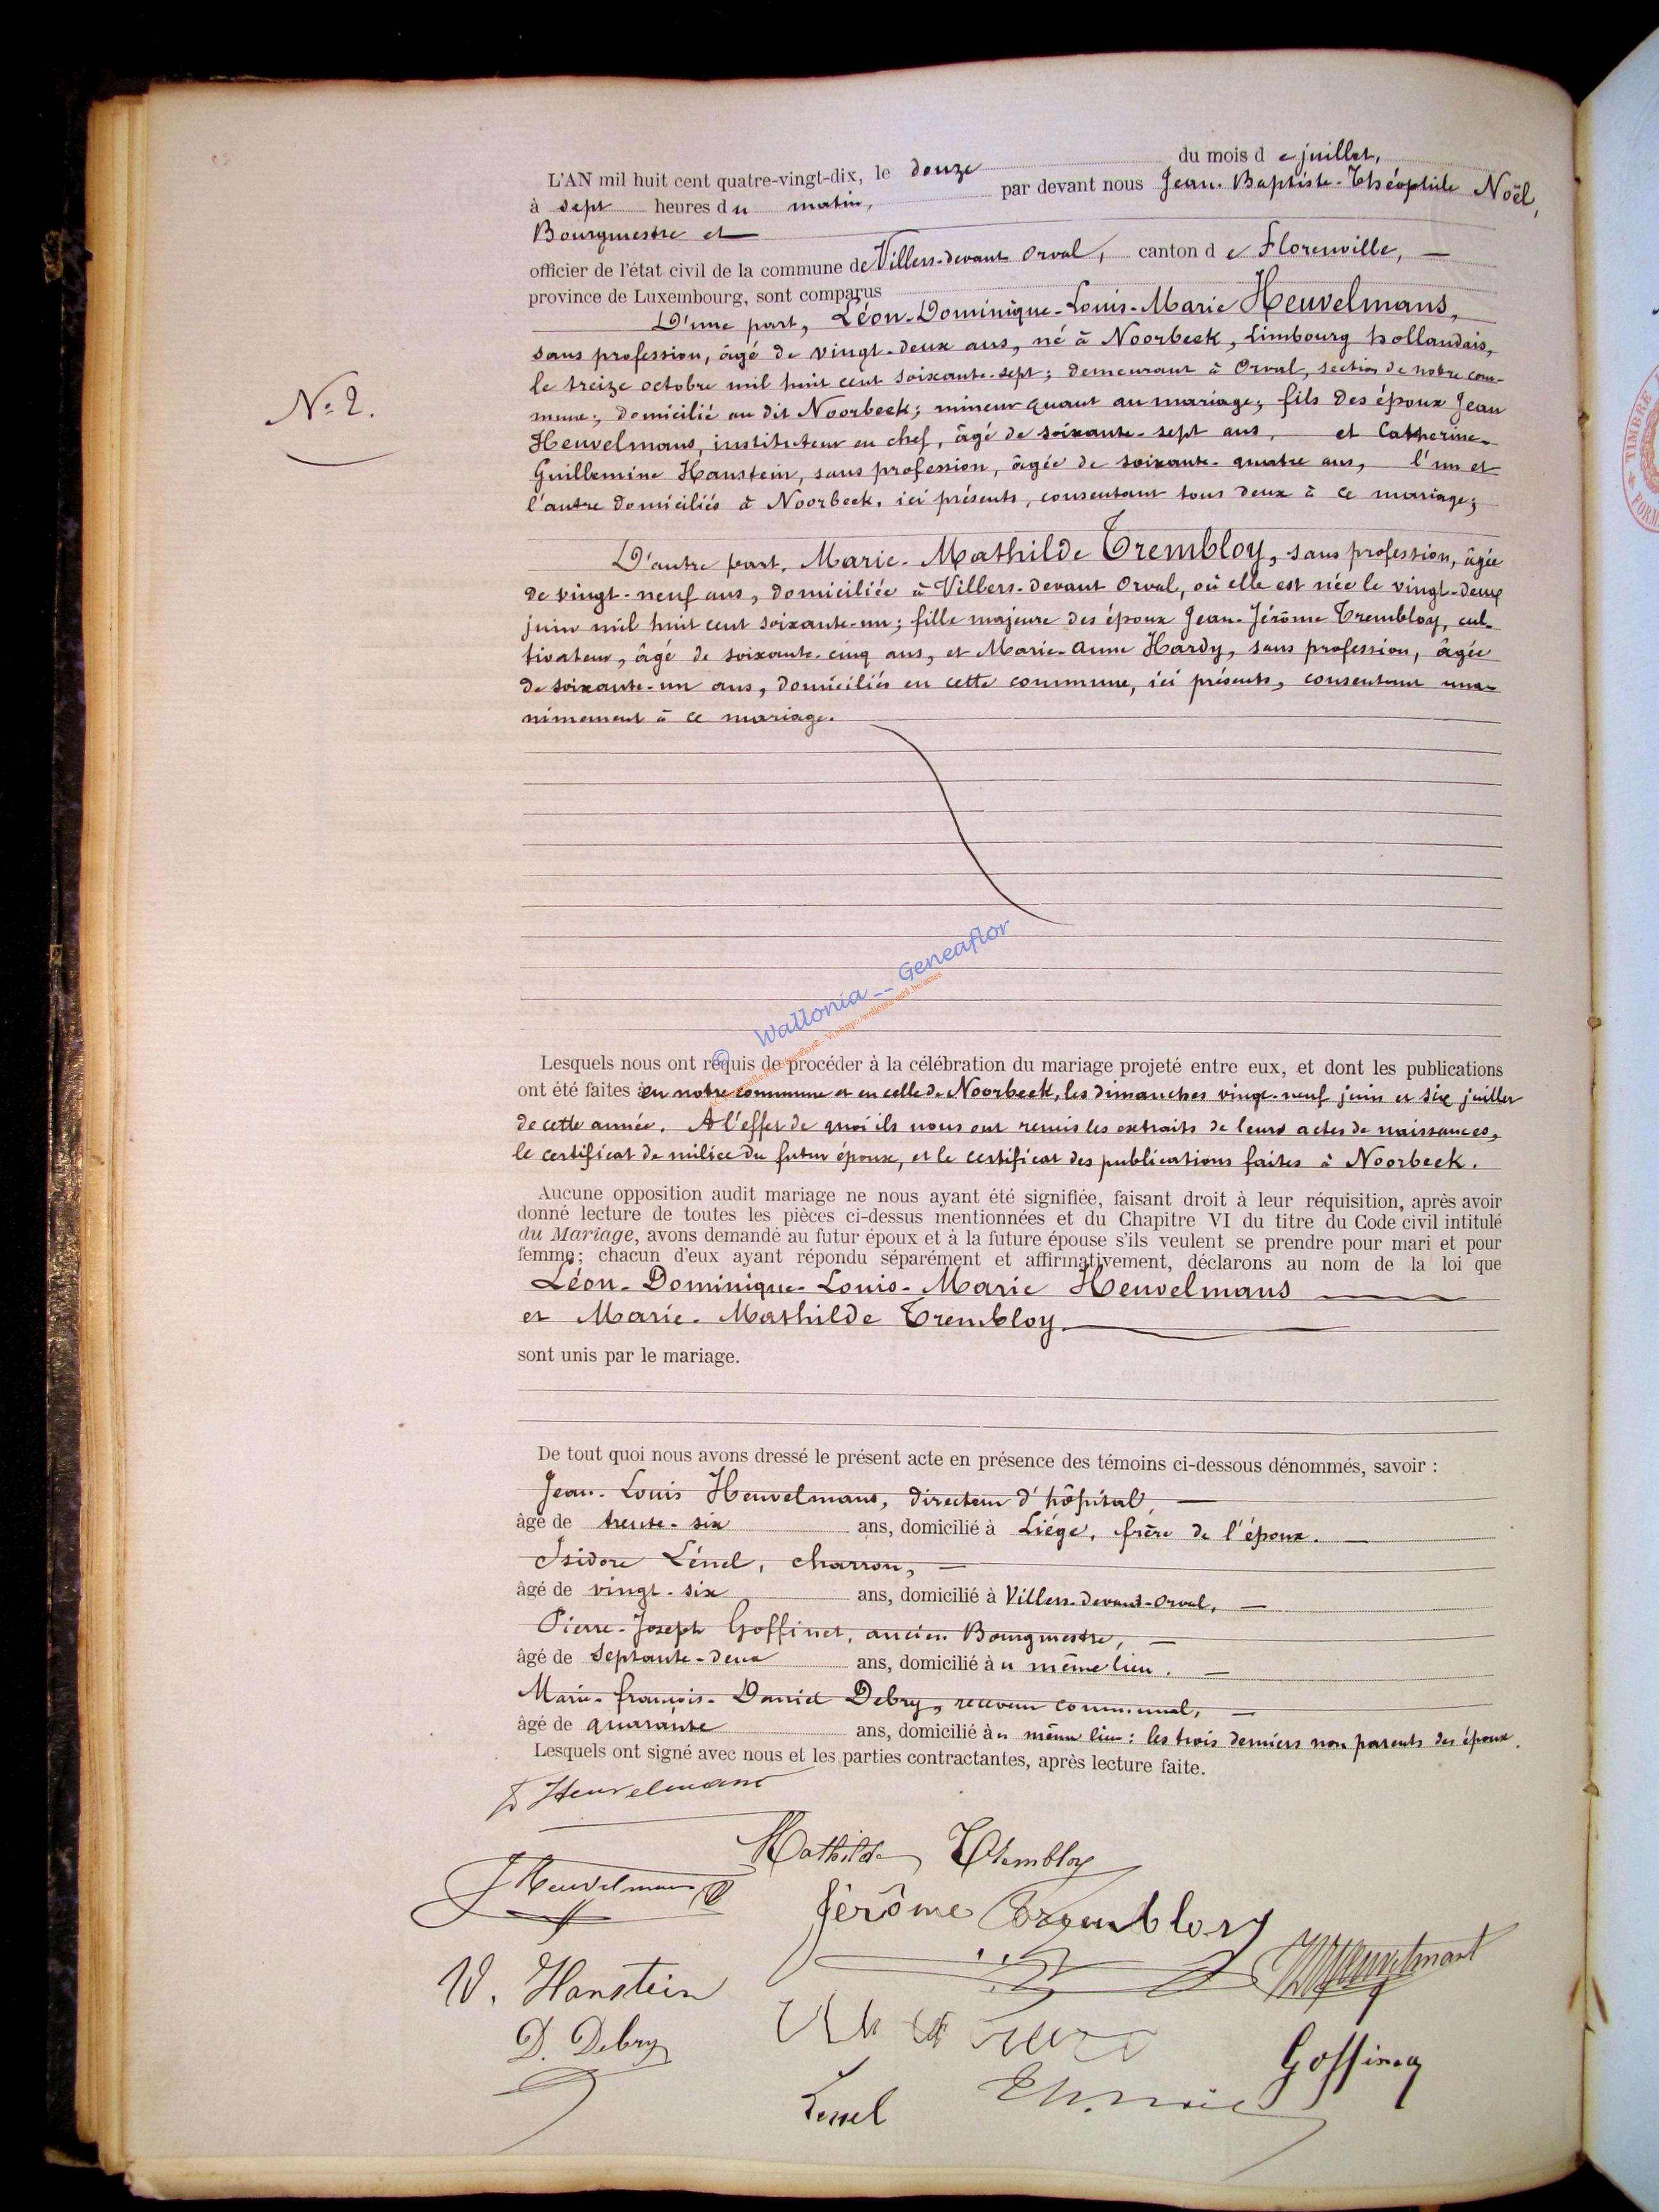 L'AN mil huit cent quatre-vingt-dix, le douze du mois d e juillet,
à sept heures d u matin, par devant nous Jean-Baptiste-Théophile Noël,
Bourgmestre et
officier de l'état civil de la commune de Villers-devant Orval, canton d e Florenville,
province de Luxembourg, sont comparus
D'une part, Léon-Dominique-Louis-Marie Heuvelmans,
sans profession, âgé de vingt-deux ans, né à Noorbeek, Limbourg hollandais,
le treize octobre mil huit cent soixante-sept; demeurant à Orval, section de notre com-
No 2.
mune; domicilié au dit Noorbeek; mineur quant au mariage; fils des époux Jean
Heuvelmans, instituteur en chef, âgé de soixante-sept ans, et Catherine-
Guillemine Hanstein, sans profession, âgée de soixante-quatre ans, l'un et
l'autre domiciliés à Noorbeek, ici présents, consentant tous deux à ce mariage;
D'autre part, Marie-Mathilde Trembloy, sans profession, âgée
de vingt-neuf ans, domiciliée à Villers-devant Orval, où elle est née le vingt-deux
juin mil huit cent soixante-un; fille majeure des époux Jean-Jérôme Trembloy, cul-
tivateur, âgé de soixante-cinq ans, et Marie-Anne Hardy, sans profession, âgée
de soixante-un ans, domiciliés en cette commune, ici présents, consentant una-
nimement à ce mariage.
© Wallonia -- Geneaflor
Lesquels nous ont requis de procéder à la célébration du mariage projeté entre eux, et dont les publications
ont été faites en notre commune et en celle de Noorbeek, les dimanches vingt-neuf juin et six juillet
de cette année. A l'effet de quoi ils nous ont remis les extraits de leurs actes de naissances,
le certificat de milice du futur époux, et le certificat des publications faites à Noorbeek.
Aucune opposition audit mariage ne nous ayant été signifiée, faisant droit à leur réquisition, après avoir
donné lecture de toutes les pièces ci-dessus mentionnées et du Chapitre VI du titre du Code civil intitulé
du Mariage, avons demandé au futur époux et à la future épouse s'ils veulent se prendre pour mari et pour
femme; chacun d'eux ayant répondu séparément et affirmativement, déclarons au nom de la loi que
Léon-Dominique-Louis-Marie Heuvelmans
et Marie-Mathilde Trembloy
sont unis par le mariage.
De tout quoi nous avons dressé le présent acte en présence des témoins ci-dessous dénommés, savoir :
Jean-Louis Heuvelmans, directeur d'hôpital,
âgé de trente-six ans, domicilié à Liége, frère de l'époux.
Isidore Lénel, charron,
âgé de vingt-six ans, domicilié à Villers-devant-Orval,
Pierre-Joseph Goffinet, ancien Bourgmestre,
âgé de septante-deux ans, domicilié à u même lieu.
Marie-François-Daniel Debry, receveur communal,
âgé de quarante ans, domicilié à u même lieu: les trois derniers non parents des époux.
Lesquels ont signé avec nous et les parties contractantes, après lecture faite.
Heuvelmans
Mathilde Trembloy
J Heuvelmans
Jérôme Trembloy
Heuvelmans
W. Hanstein
D. Debry
Goffinet
Lenel